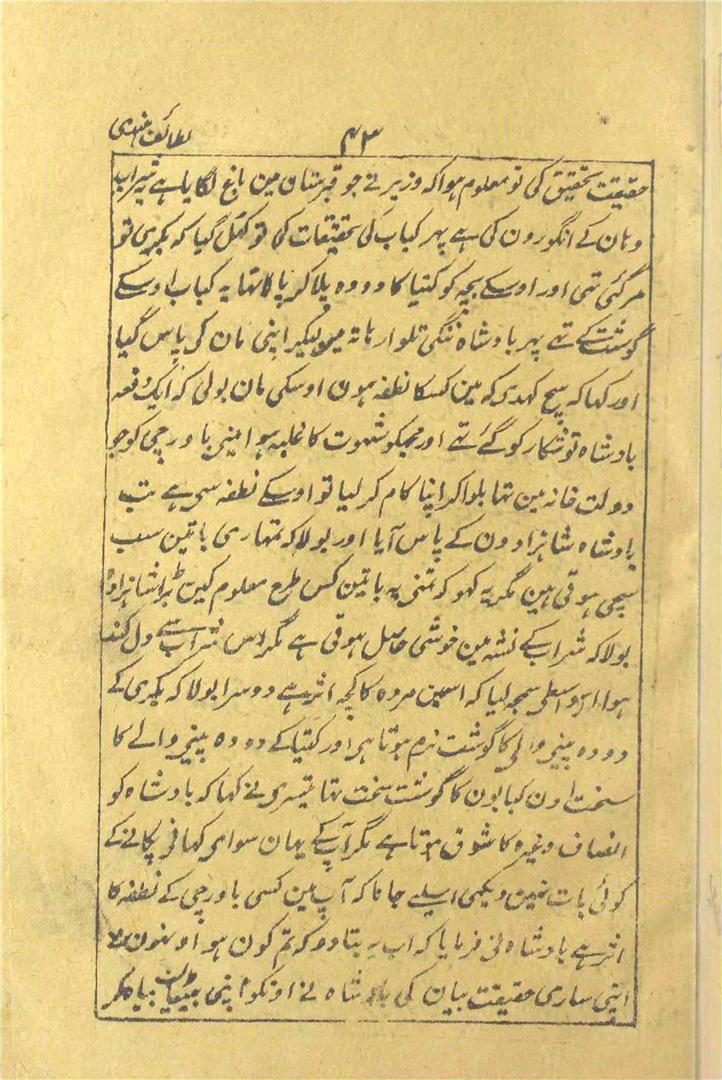 لطائف ہندی
۴۳
حقیقت تحقیق کی تو معلوم ہوا کہ وزیر نے جو قبرستان مین باغ لگایا ہے یہ شراب
وہان کے انگورون کی ہے پہر کباب کی تحقیقات کی تو کہل گیا کہ بکری تو
مرگئی تہی اور اوسکے بچہ کو کتیا کا دودہ پلا کر پالا تہا یہ کباب اوسکے
گوشت کے تہے پہر بادشاہ ننگی تلوار ہاتہ مین لیکر اپنی مان کی پاس گیا
اور کہا کہ سچ کہدی کہ مین کسکا نطفہ ہون اوسکی مان بولی کہ ایک دفعہ
بادشاہ تو شکار کو گئے تہے اور مجہکو شہوت کا غلبہ ہوا مینی باورچی کو جو
دولت خانہ مین تہا بلوا کر اپنا کام کر لیا تو اوسکے نطفہ سی ہے تب
بادشاہ شاہزادون کے پاس آیا اور بولا کہ تمہاری باتین سب
سچی ہوتی ہین مگر یہ کہو کہ تمنی یہ باتین کس طرح معلوم کین بڑا شاہزادہ
بولا کہ شراب کے نشہ مین خوشی حاصل ہوتی ہے مگر اس شراب سے دل کند
ہوا اسواسطی سمجہ لیا کہ اسمین مردہ کا کچہ اثر ہے دوسرا بولا کہ بکری کے
دودہ پینی والی کا گوشت نرم ہوتا ہر اور کتیا کے دودہ پینی والے کا
سخت اون کبابون کا گوشت سخت تہا تیسری نے کہا کہ بادشاہ کو
انصاف وغیرہ کا شوق ہوتا ہے مگر آپ کے یہان سوای کہانی پکانے کے
کوئی بات نہین دیکہی اسلیے جانا کہ آپ مین کسی باورچی کے نطفہ کا
اثر ہے بادشاہ نی فرمایا کہ اب یہ بتادو کہ تم کون ہو اوہنون نے
اپنی ساری حقیقت بیان کی بادشاہ نے اونکو اپنی بیٹیان بیاہکر